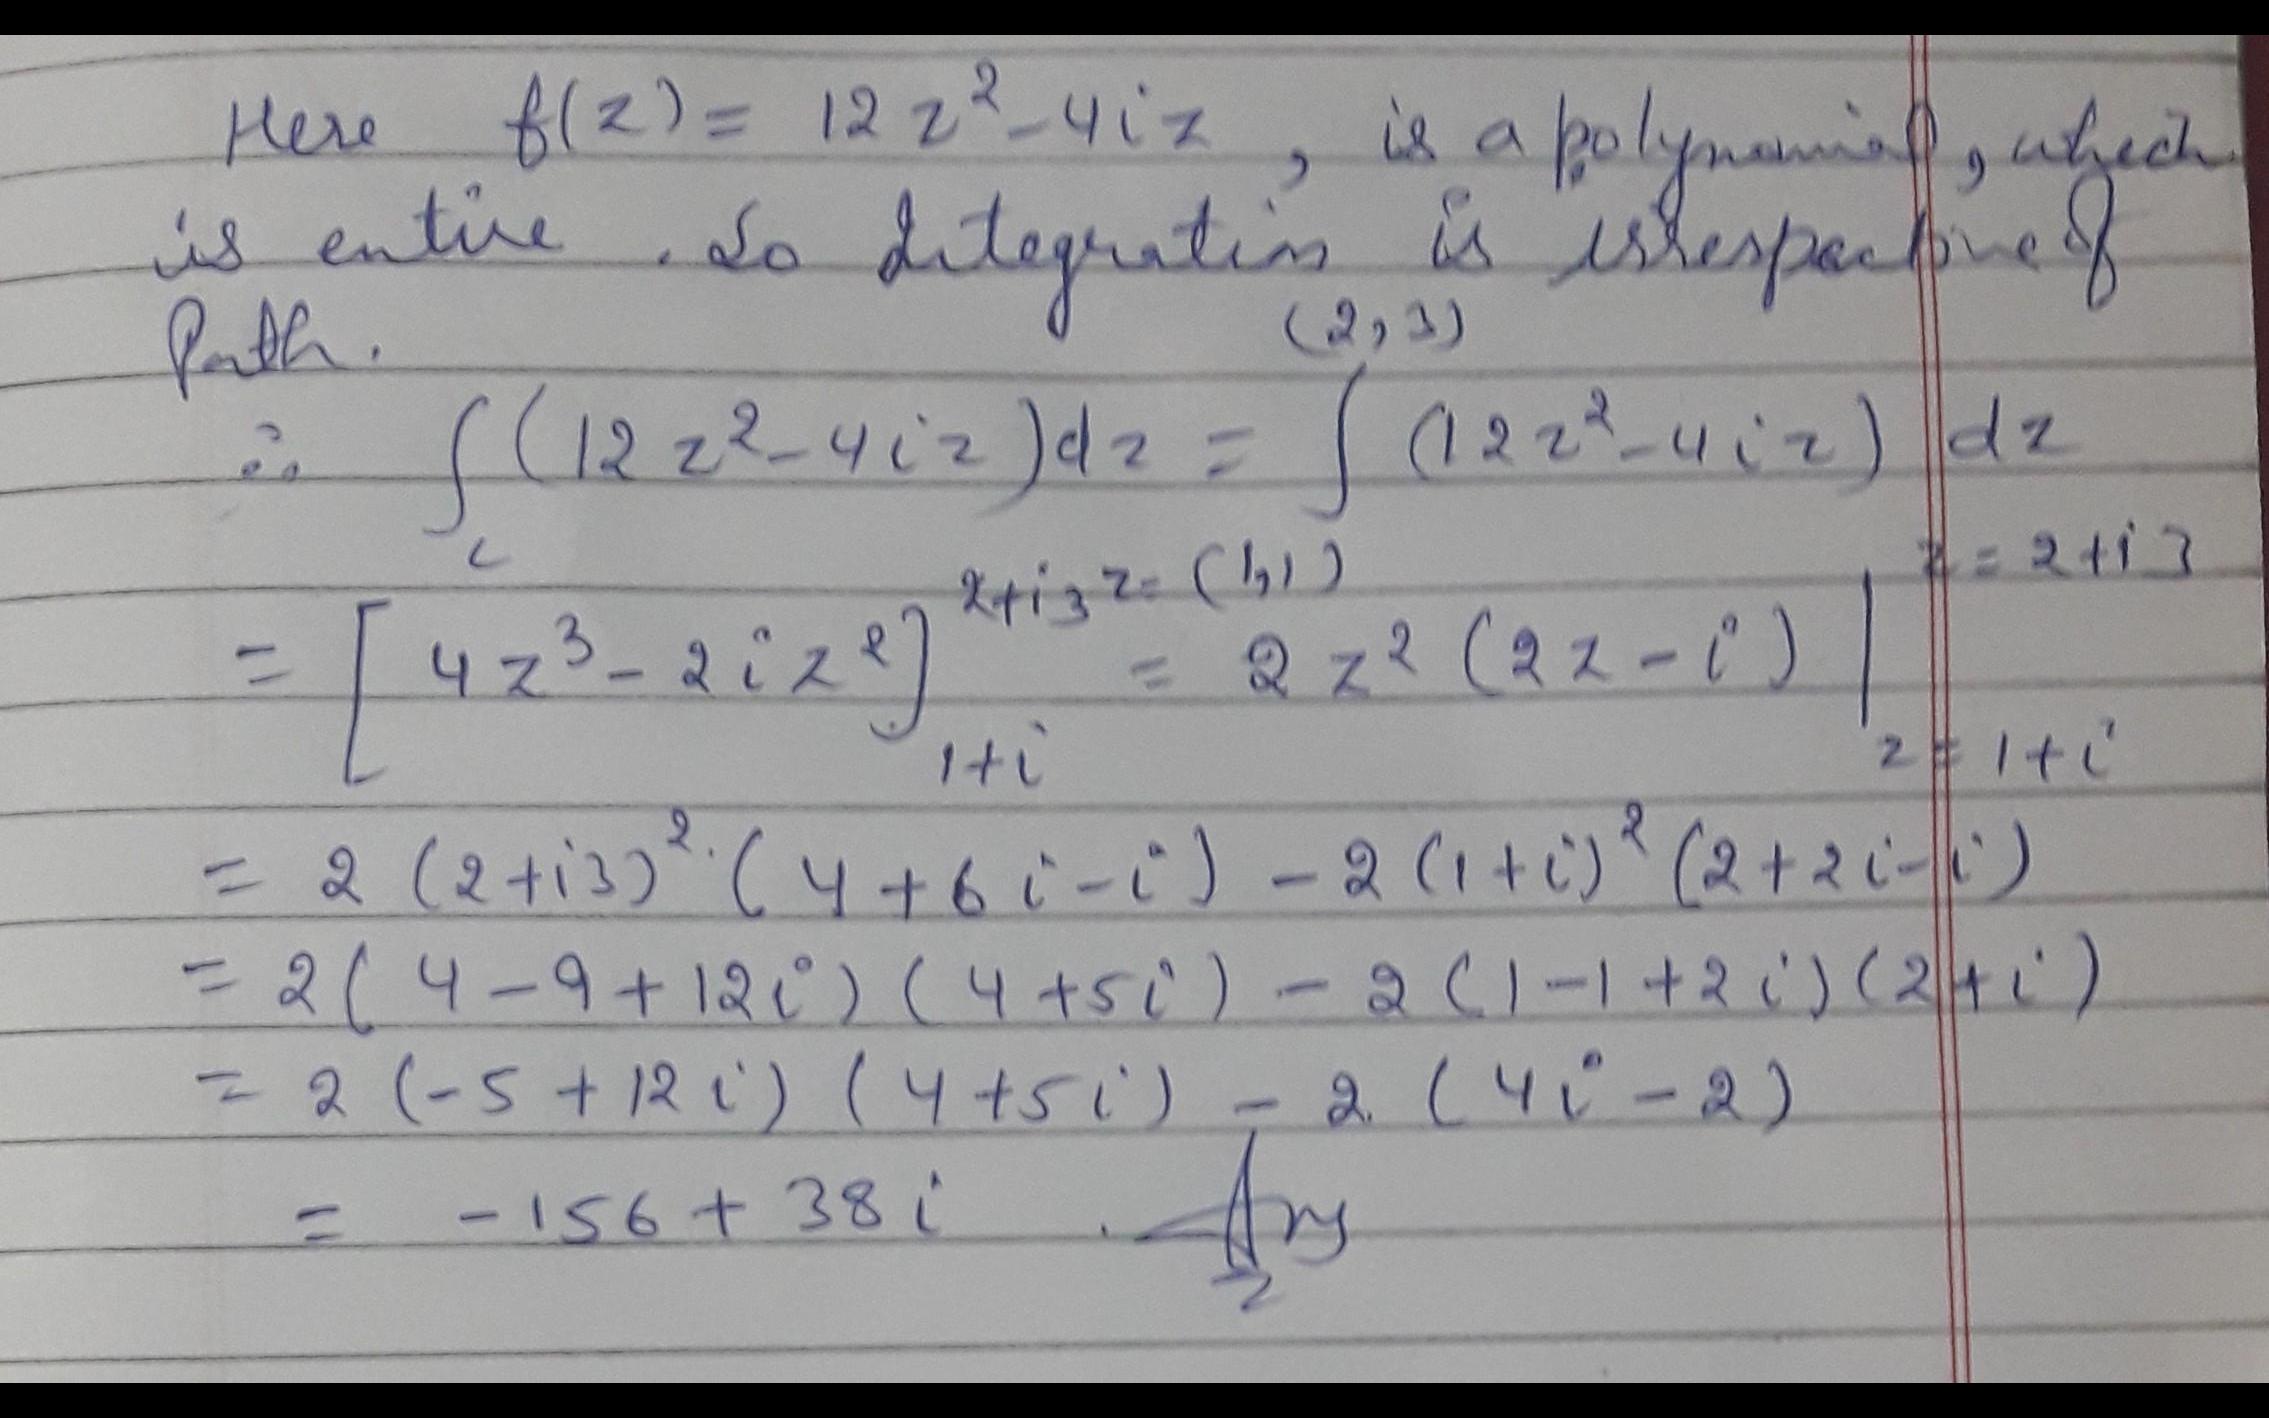 Here f(z) = 12z² - 4iz, is a polynomial, which
is entire. So Integration is irrespective of
Path.
∴ ∫_c (12z² - 4iz)dz = ∫_{z=(1,1)}^{(2,3)} (12z² - 4iz) dz
= [4z³ - 2iz²]_{1+i}^{2+i3} = 2z²(2z - i) |_{z=1+i}^{z=2+i3}
= 2(2+i3)².(4+6i-i) - 2(1+i)²(2+2i-i)
= 2(4-9+12i)(4+5i) - 2(1-1+2i)(2+i)
= 2(-5+12i)(4+5i) - 2.(4i-2)
= -156+38i. Ans